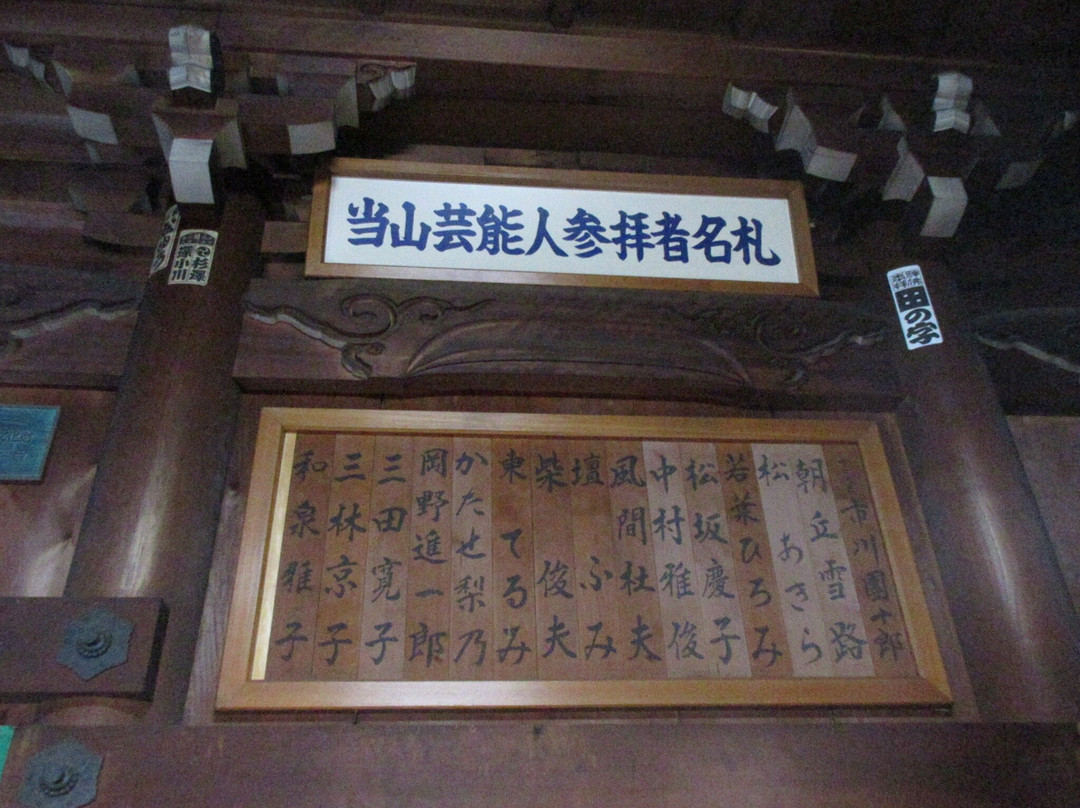 当山芸能人参拝者名札
市川團十郎
朝丘雪路
松あきら
若葉ひろみ
松坂慶子
中村雅俊
風間杜夫
壇ふみ
柴俊夫
東てるみ
かたせ梨乃
岡野進一郎
三田寛子
三林京子
和泉雅子
田の字